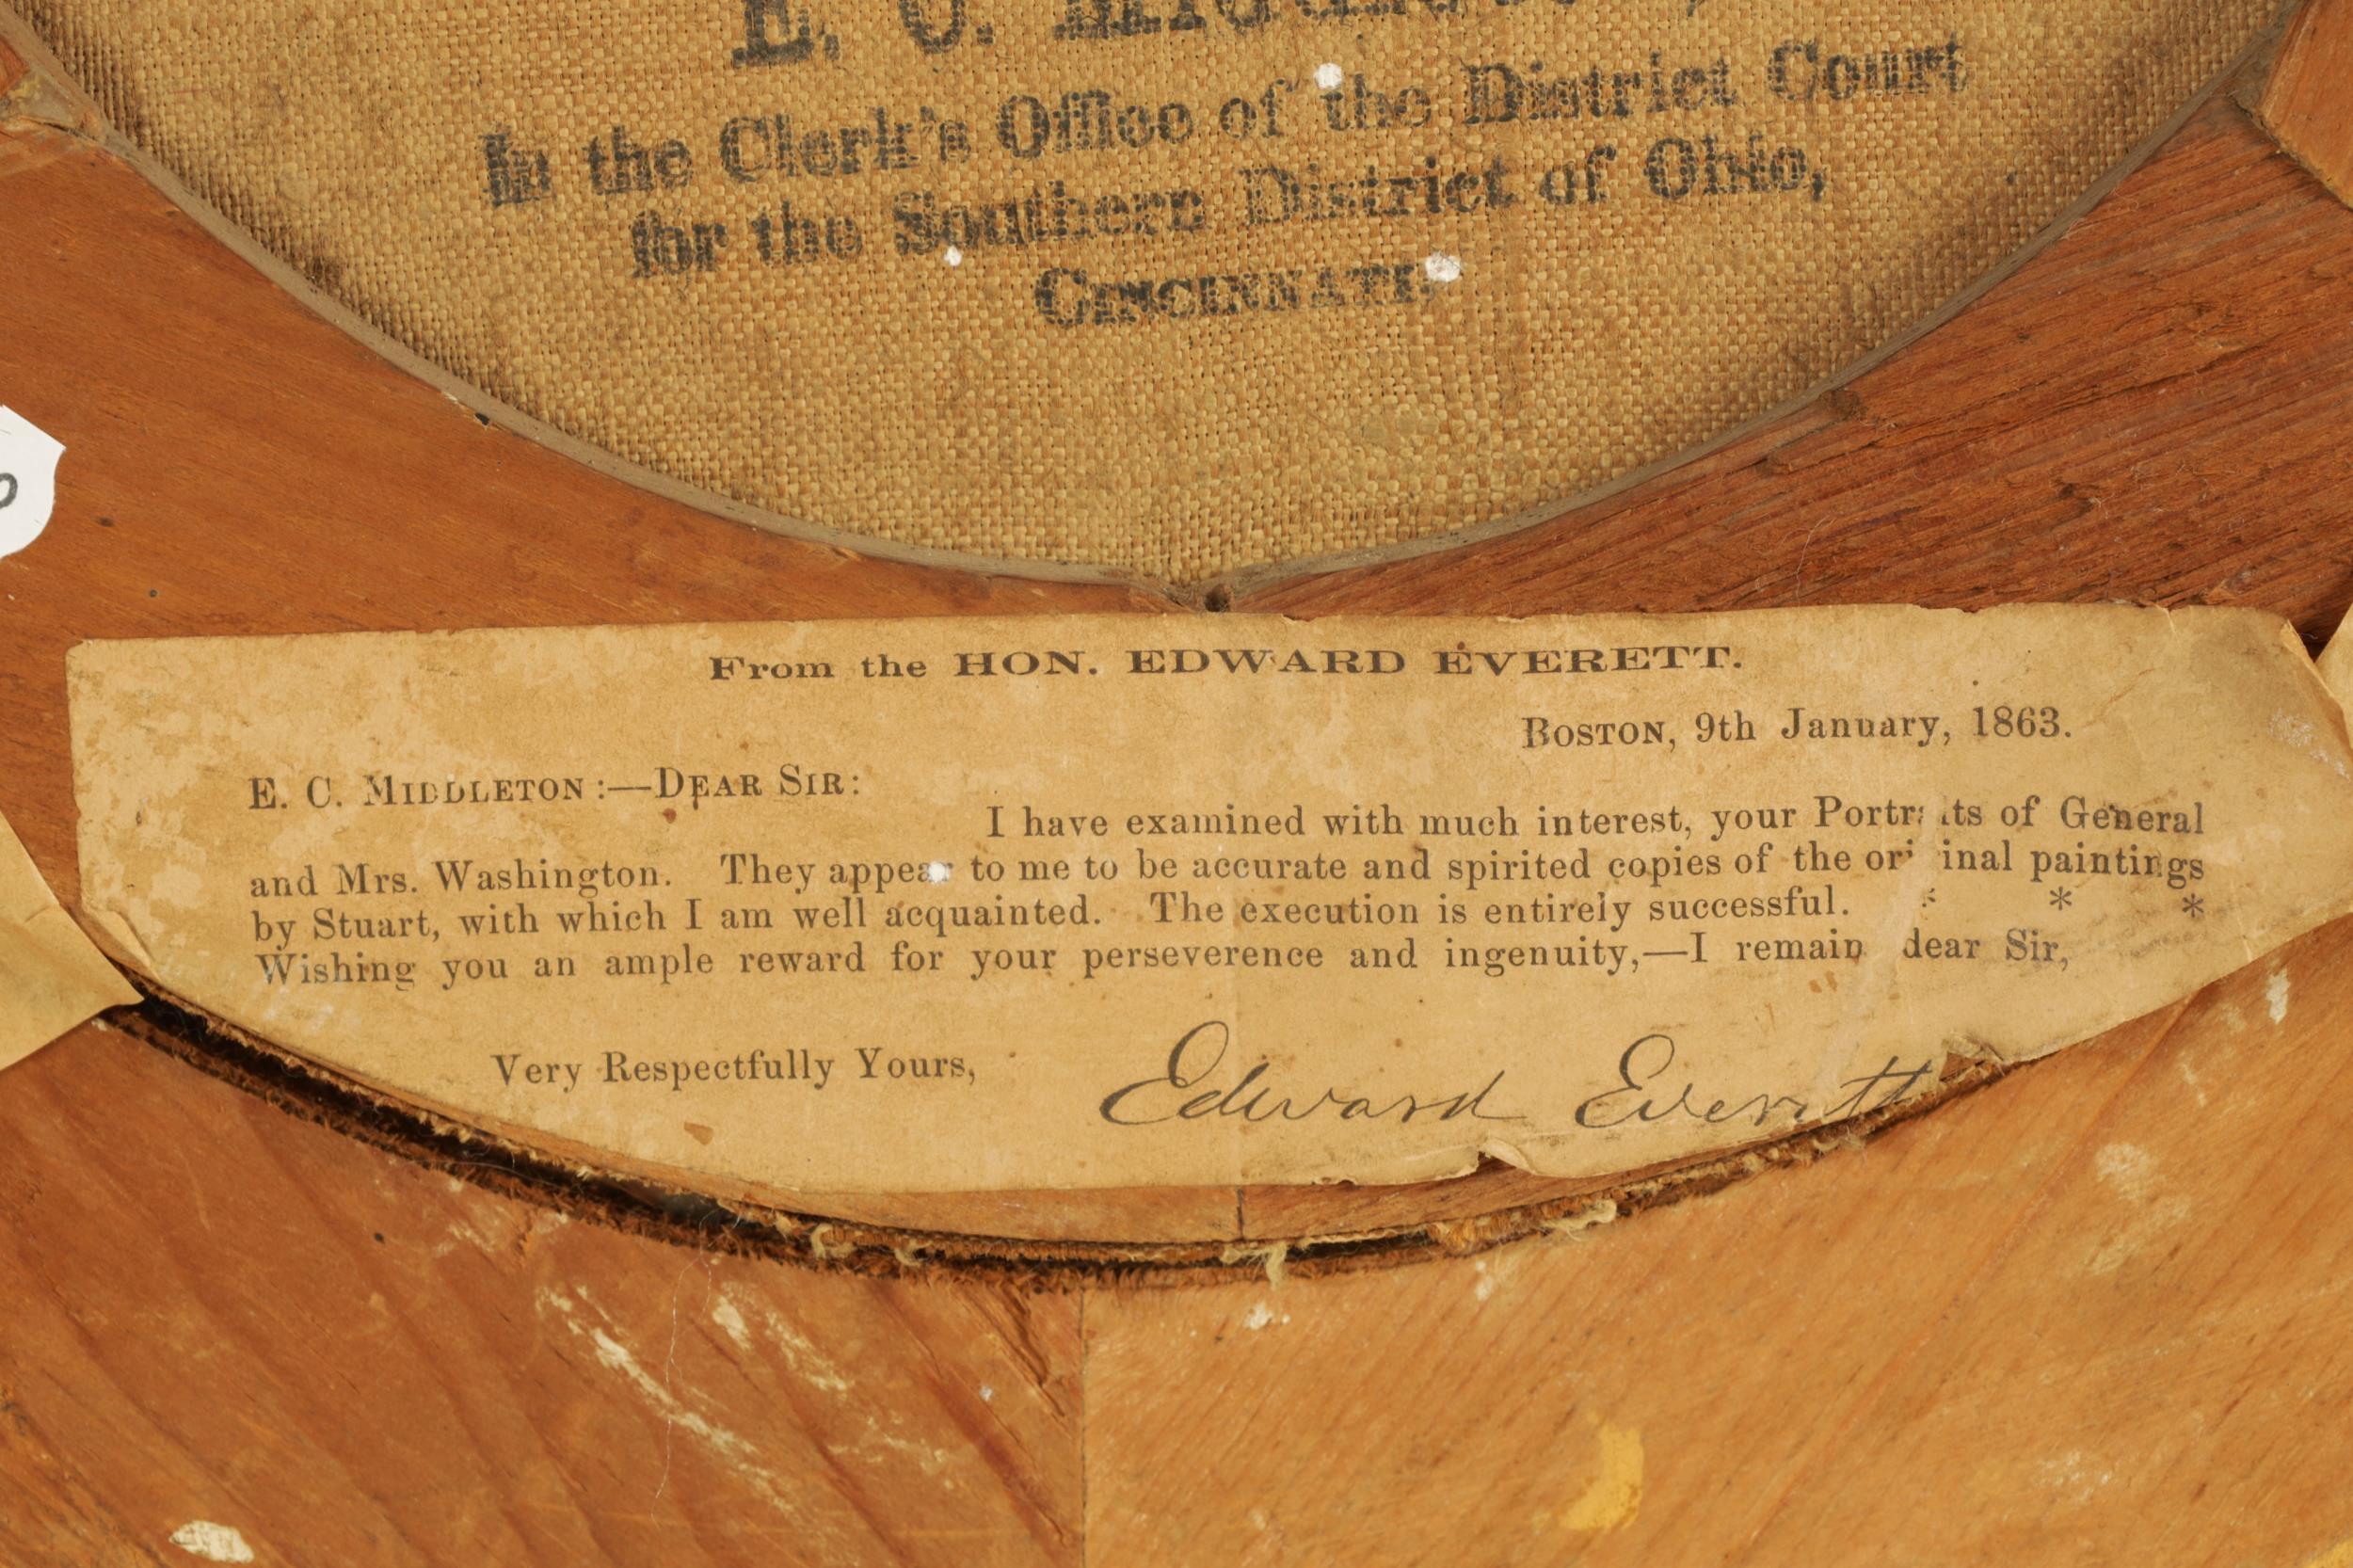 E. C. Middleton,
In the Clerk's Office of the District Court
for the Southern District of Ohio,
CINCINNATI.
From the HON. EDWARD EVERETT.
BOSTON, 9th January, 1863.
E. C. MIDDLETON:—DEAR SIR:
I have examined with much interest, your Portraits of General
and Mrs. Washington. They appear to me to be accurate and spirited copies of the original paintings
by Stuart, with which I am well acquainted. The execution is entirely successful. * * *
Wishing you an ample reward for your perseverence and ingenuity,—I remain dear Sir,
Very Respectfully Yours,
Edward Everett